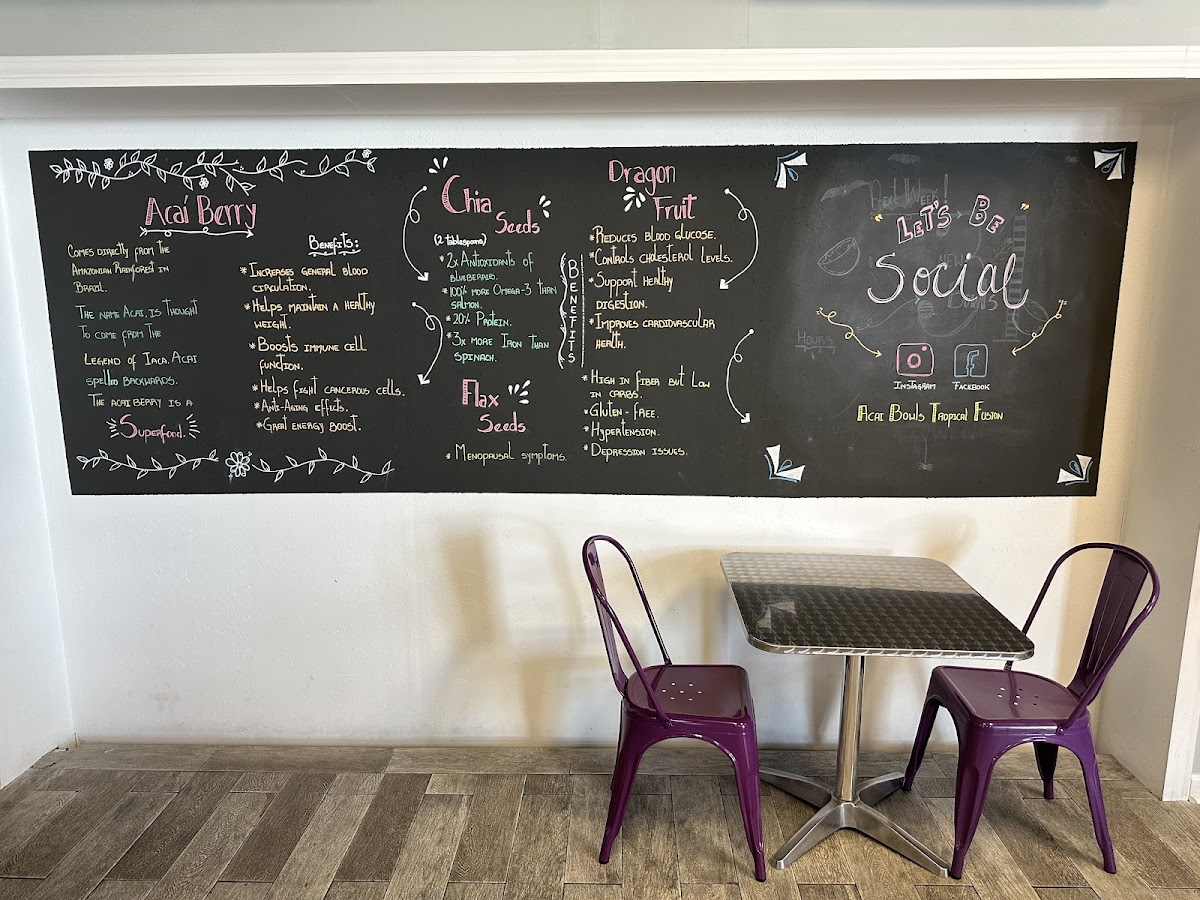 Acaí Berry
Comes directly from the
Amazonian Rainforest in
Brazil.
The name Acai, is thought
to come from the
Legend of Iaca, Acai
spelled backwards.
The acai berry is a
Superfood.
Benefits:
* Increases general blood
circulation.
* Helps maintain a healthy
weight.
* Boosts immune cell
function.
* Helps fight cancerous cells.
* Anti-Aging effects.
* Great energy boost.
Chia
Seeds
(2 tablespoons)
* 2x Antioxidants of
blueberries.
* 100% more Omega-3 than
salmon.
* 20% Protein.
* 3x more Iron than
spinach.
Flax
Seeds
* Menopausal symptoms.
BENEFITS
Dragon
Fruit
* Reduces blood glucose.
* Controls cholesterol levels.
* Support healthy
digestion.
* Improves cardiovascular
health.
* High in fiber but low
in carbs.
* Gluten-free.
* Hypertension.
* Depression issues.
"Let's Be"
Social
Hours
Instagram
Facebook
Acai Bowls Tropical Fusion